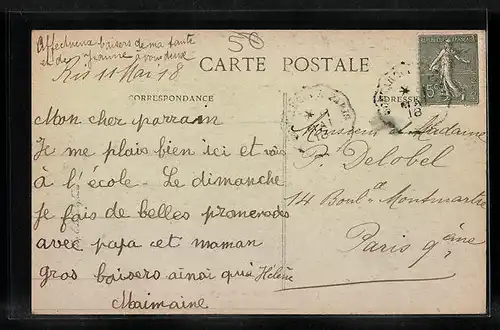 Affectueux baisers de ma tante
et de Jeanne à vous deux
50
Ris 11 Mai 18
CARTE POSTALE
CORRESPONDANCE
ADRESSE
REPUBLIQUE FRANÇAISE
15
Mon cher parrain
Je me plais bien ici et vais
à l'école - Le dimanche
je fais de belles promenades
avec papa et maman
gros baisers ainsi qu'à Hélène
Maimaine
Monsieur et Madame
P. Delobel
14 Boul. Montmartre
Paris 9ème